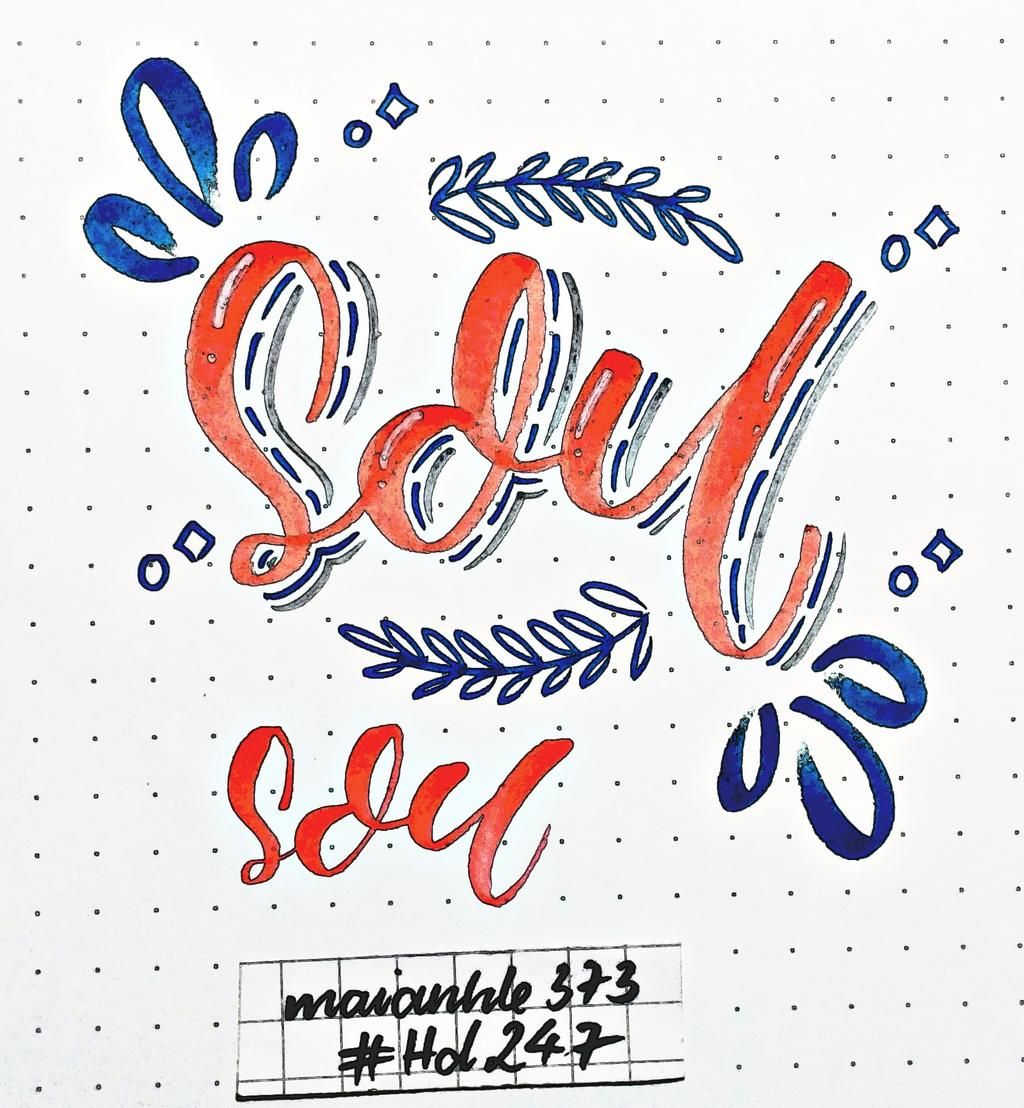 Soul
soul
maianhle 373
#Hd 247